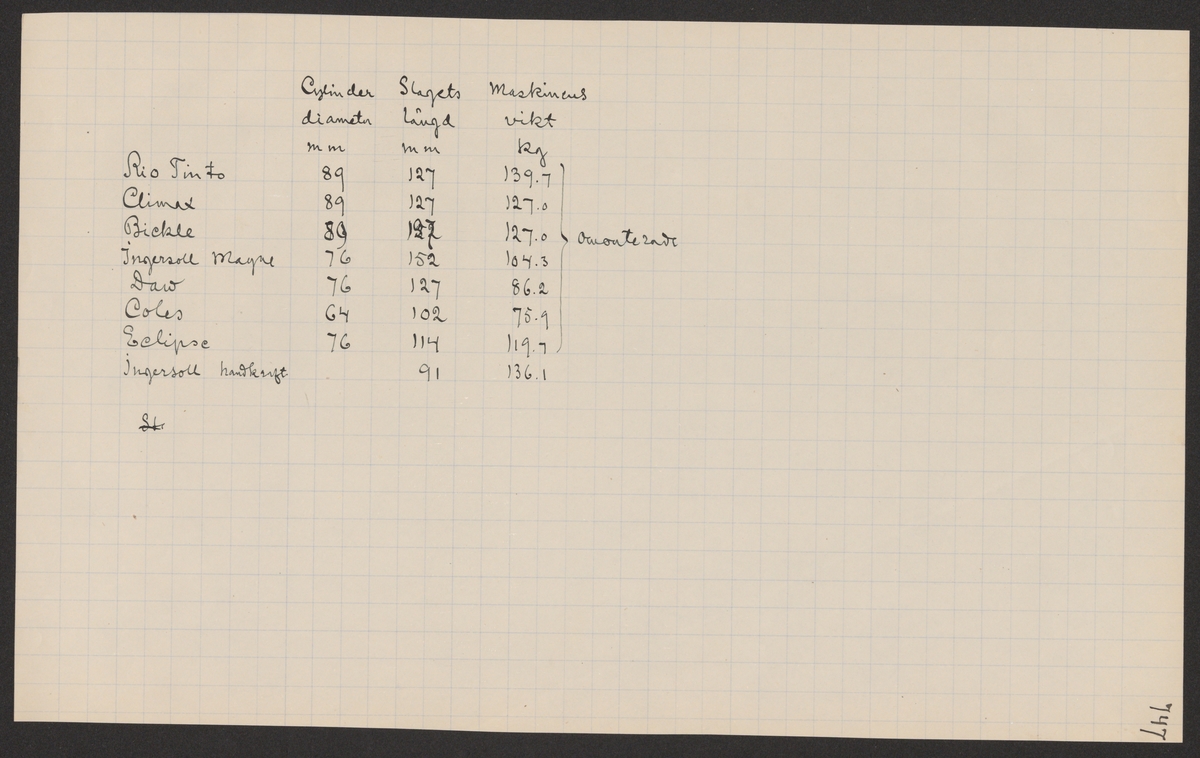 Cylinder Slagets Maskinens
diameter längd vikt
mm mm kg
Rio Tinto 89 127 139.7
Climax 89 127 127.0
Bickle 89 127 127.0 omonterade
Ingersoll Mayne 76 152 104.3
Daw 76 127 86.2
Coles 64 102 75.9
Eclipse 76 114 119.7
Ingersoll handkraft 91 136.1
St.
447